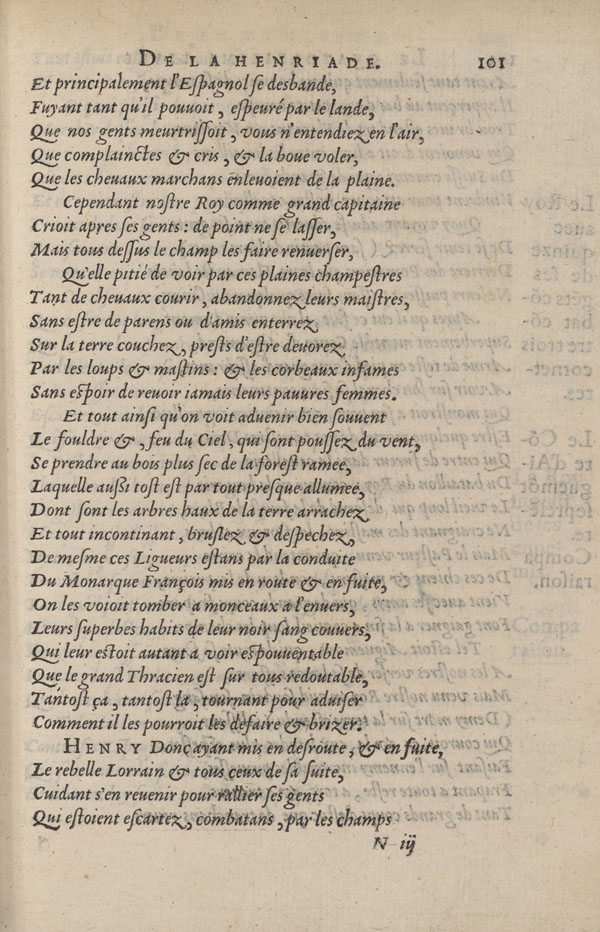 DE LA HENRIADE. 101
Et principalement l'Eſpagnol ſe desbande,
Fuyant tant qu'il pouuoit, eſpeuré par le lande,
Que nos gents meurtriſſoit, vous n'entendiez en l'air,
Que complainctes & cris, & la boue voler,
Que les cheuaux marchans enleuoient de la plaine.
Cependant noſtre Roy comme grand capitaine
Crioit apres ſes gents : de point ne ſe laſſer,
Mais tous deſſus le champ les faire renuerſer,
Qu'elle pitié de voir par ces plaines champeſtres
Tant de cheuaux courir, abandonnez leurs maiſtres,
Sans eſtre de parens ou d'amis enterrez
Sur la terre couchez, preſts d'eſtre deuorez
Par les loups & maſtins : & les corbeaux infames
Sans eſpoir de reuoir iamais leurs pauures femmes.
Et tout ainſi qu'on voit aduenir bien ſouuent
Le fouldre &, feu du Ciel, qui ſont pouſſez du vent,
Se prendre au bois plus ſec de la foreſt ramee,
Laquelle auſſi toſt eſt par tout preſque allumee,
Dont ſont les arbres haux de la terre arrachez
Et tout incontinant, bruſlez & deſpechez,
De meſme ces Ligueurs eſtans par la conduite
Du Monarque François mis en route & en fuite,
On les voioit tomber a monceaux a l'enuers,
Leurs ſuperbes habits de leur noir ſang couuers,
Qui leur eſtoit autant a voir eſpouuentable
Que le grand Thracien eſt ſur tous redoutable,
Tantoſt ça, tantoſt la, tournant pour aduiſer
Comment il les pourroit les défaire & brizer.
HENRY Donc ayant mis en deſroute, & en fuite,
Le rebelle Lorrain & tous ceux de ſa ſuite,
Cuidant s'en reuenir pour rallier ſes gents
Qui eſtoient eſcartez, combatans, par les champs
N iij